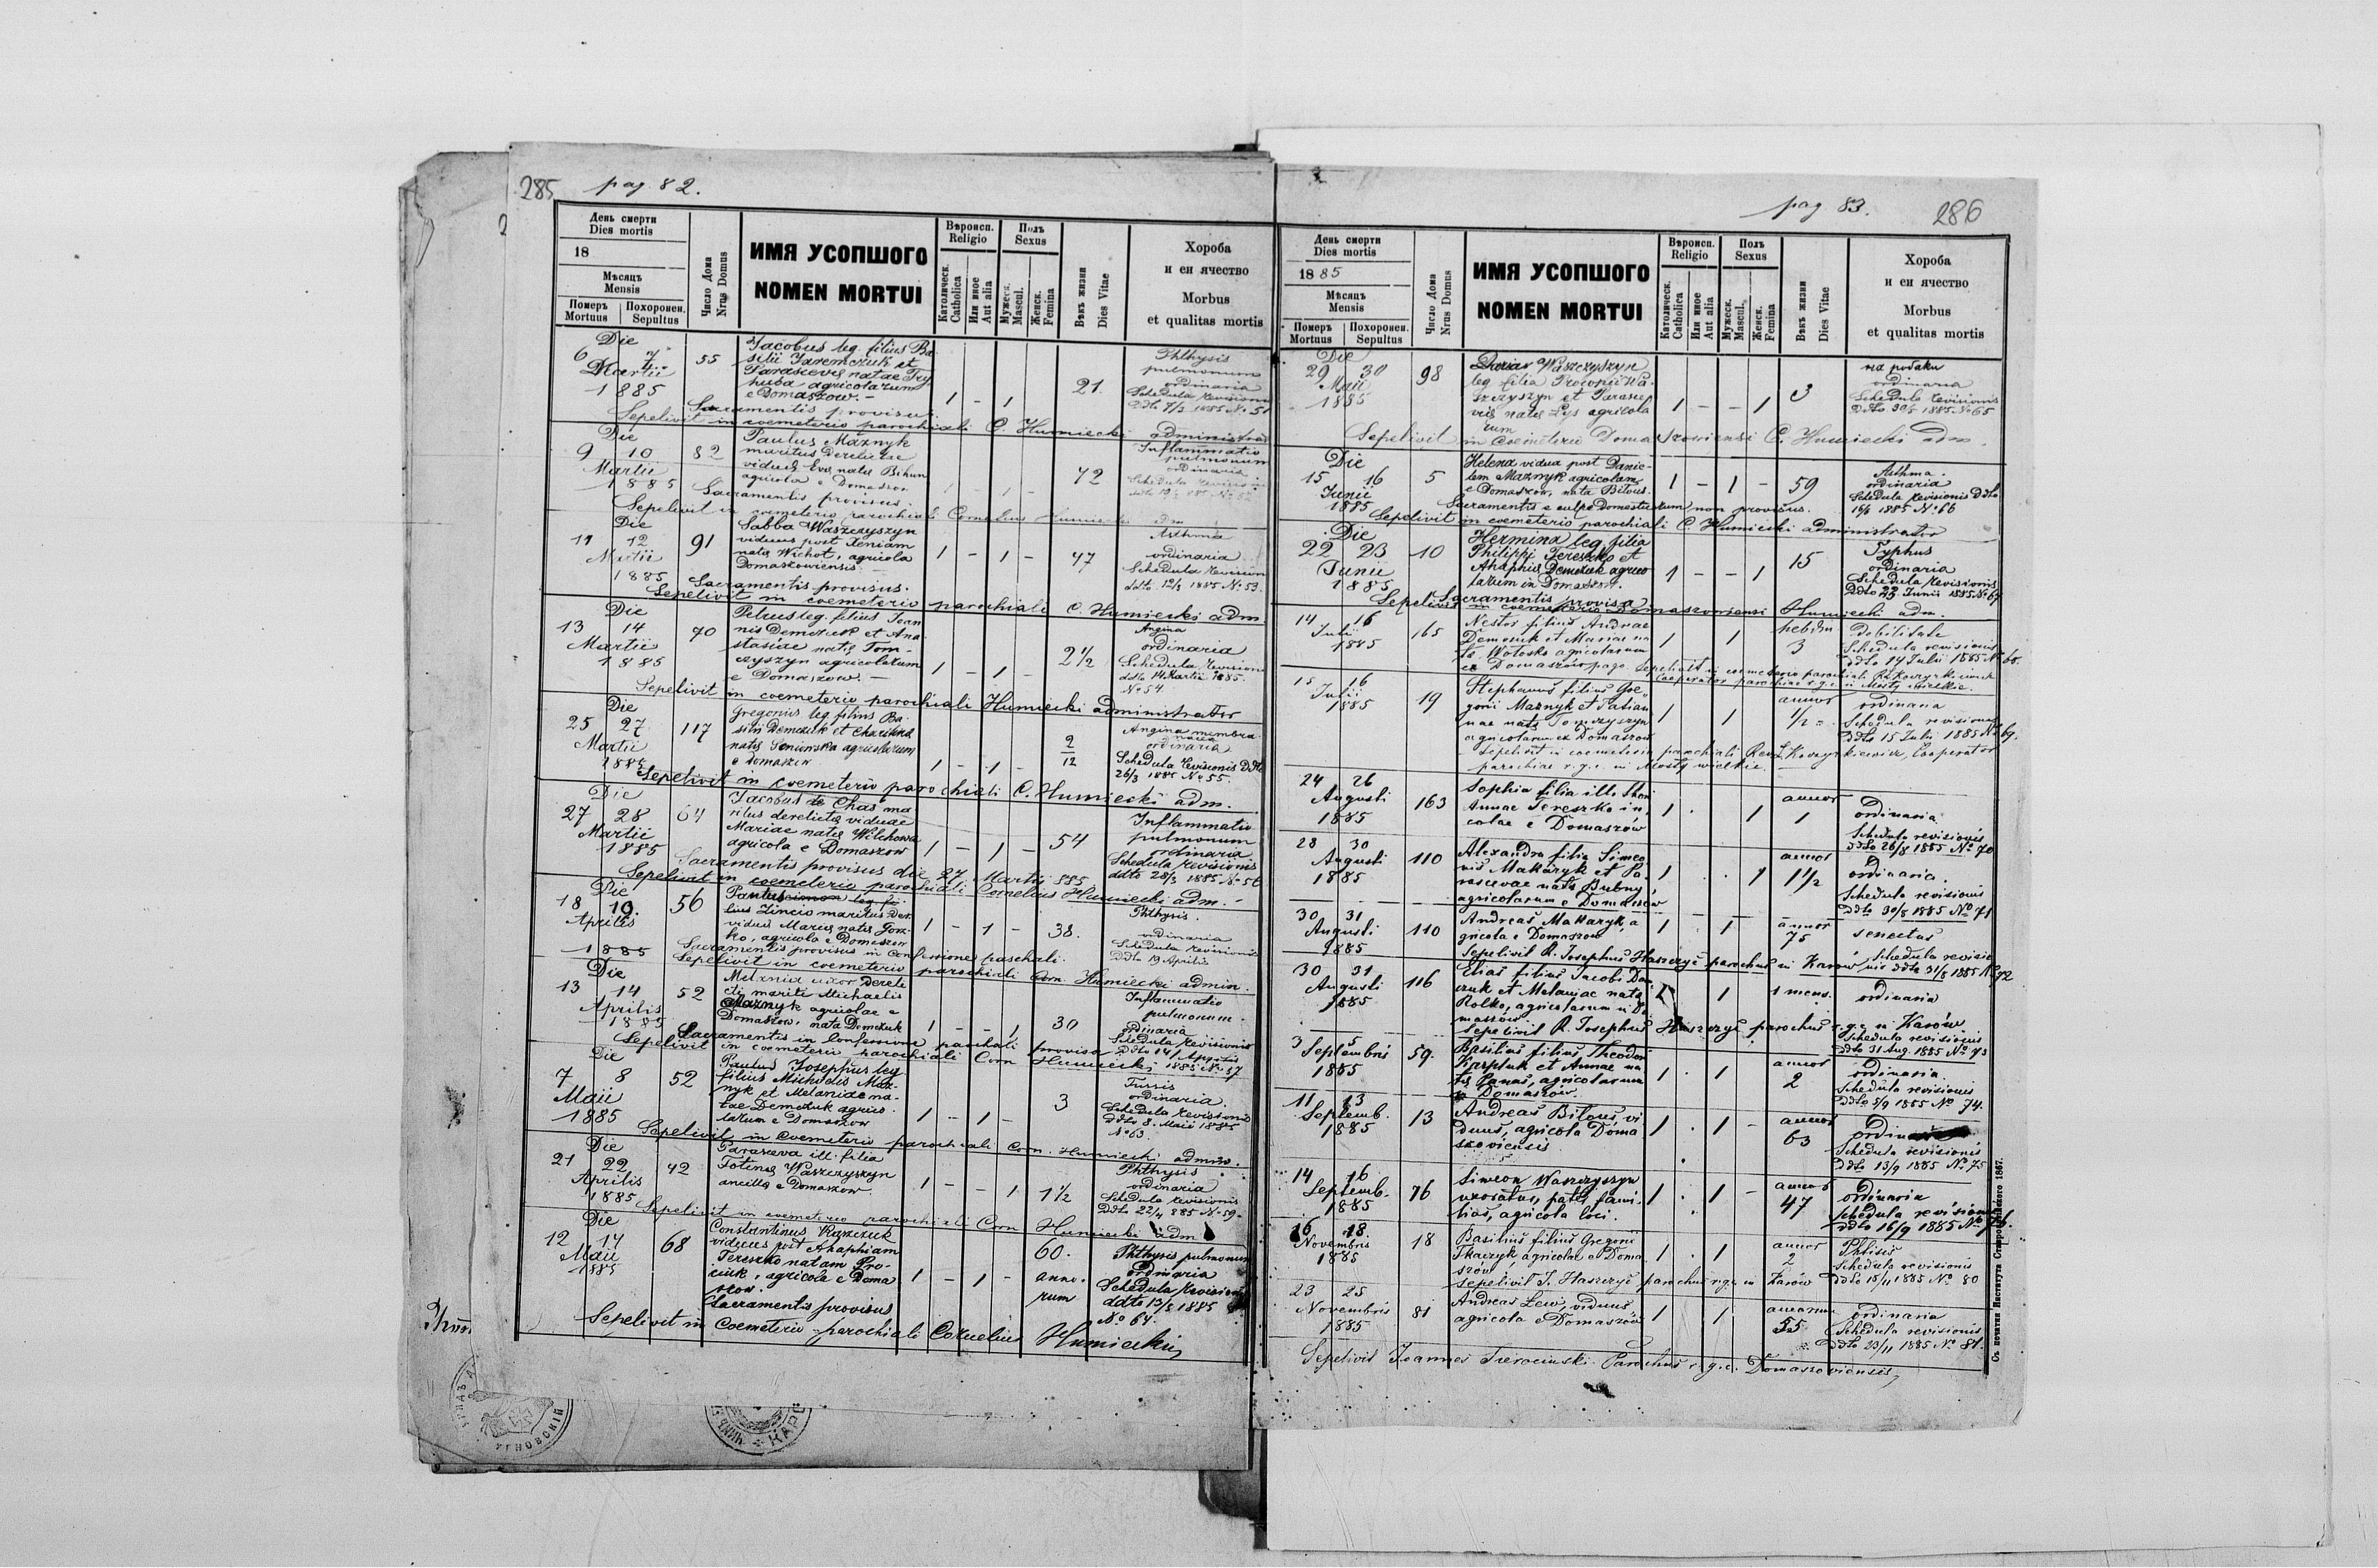 285 pag. 82.
День смерти
Dies mortis
18
Мѣсяць
Mensis
Померъ Похоронен.
Mortuus Sepultus
Число Дома
Nrus Domus
ИМЯ УСОПШОГО
NOMEN MORTUI
Вѣроисп.
Religio
Католическ.
Catholica
Или иное
Aut alia
Полъ
Sexus
Мужеск.
Mascul.
Женск.
Femina
Вѣкъ жизни
Dies Vitae
Хороба
и еи ячество
Morbus
et qualitas mortis
Die
6 7 Martii 1885
55
Jacobus leg. filius Ba-
silii Jaremczuk et
Parascevae natae Try-
huba agricolarum
e Domaszow. –
1 - 1 21
Phthysis
pulmonum
ordinaria
Schedula revisionis
ddto 7/3 1885 No 51
Sacramentis provisus.
Sepelivit in coemeterio parochiali C. Humiecki administrator
Die
9 10 Martii 1885
82
Paulus Maznyk
maritus derelictae
viduae Evae natae Bihun
agricola e Domaszow
1 - 1 - 72
Inflammatio
pulmonum
ordinaria
Sacramentis provisus
Sepelivit in coemeterio parochiali Cornelius Humiecki adm
Die
11 12 Martii 1885
91
Sabba Waszczyszyn
viduus post Xeniam
natam Wichot, agricola
Domaszowiensis. –
1 - 1 - 47
Asthma
ordinaria
Schedula revisionis
ddto. 12/3 1885 No 53.
Sacramentis provisus.
Sepelivit in coemeterio parochiali C. Humiecki adm
Die
13 14 Martii 1885
70
Petrus leg. filius Joan-
nis Demczuk et Ana-
stasiae natae Tom-
czyszyn agricolarum
e Domaszow. –
1 - 1 - 2 1/2
Angina
ordinaria
Schedula revisionis
ddto 14 Martii 1885.
No 54
Sepelivit in coemeterio parochiali Humiecki administrator
Die
25 27 Martii 1885
117
Gregorius leg. filius Ba-
silii Demczuk et
natae agricolarum
e Domaszow
1 - 1 - 2/12
Angina membra-
nacea
ordinaria
Schedula revisionis ddto
26/3 1885 No 55.
Sepelivit in coemeterio parochiali C. Humiecki adm.
Die
27 28 Martii 1885
64
Jacobus de Chas ma-
ritus derelictae viduae
Mariae natae Wilchowa
agricola e Domaszow
1 - 1 - 54
Inflammatio
pulmonum
ordinaria
Schedula revisionis
ddto 28/3 1885 No 56
Sacramentis provisus die 27 Martii 885
Sepelivit in coemeterio parochiali Cornelius Humiecki adm. –
Die
18 19. Aprilis 1885
56
leg. fi-
lius Zincio maritus der.
viduae Mariae natae
agricola e Domaszow
1 - 1 - 38.
Phthysis.
ordinaria
Schedula revisionis
ddto 19 Aprilis
Sacramentis provisus in confessione paschali.
Sepelivit in coemeterio parochiali Corn. Humiecki admin.
Die
13 14 Aprilis 1885
52
Melania uxor derelic-
ti mariti Michaelis
Maznyk agricolae e
Domaszow. nata Demczuk
1 - - 1 30
Inflammatio
pulmonum.
ordinaria
Schedula revisionis
ddto 14/ Aprilis
1885 No 57
Sacramentis in Confessione paschali provisa
Sepelivit in coemeterio parochiali Corn Humiecki
Die
7 8 Maii 1885
52
Paulus Josephus leg
filius Michaelis Maz-
nyk et Melaniae na-
tae Demczuk agrico-
larum e Domaszow
1 - 1 - 3
Tussis
ordinaria.
Schedula revisionis
ddto 8. Maii 1885
No 63.
Sepelivit in coemeterio parochiali Corn. Humiecki admin.
Die
21 22 Aprilis 1885
42
Parasceva ill. filia
Fotinae Waszczyszyn
ancillae e Domaszow.
1 - - 1 1 1/2
Phthysis
ordinaria
Schedula revisionis
ddto 22/4 885 No 59.
Sepelivit in coemeterio parochiali Corn Humiecki adm
Die
12 14 Maii 1885
68
Constantinus
viduus post Ahaphiam
Tereszko natam Pro-
ciuk, agricola e Doma-
szow.
Sacramentis provisus
1 - 1 - 60. anno-
rum
Phthysis pulmonum
ordinaria
Schedula revisionis
ddto 13/5 1885
No 64.
Sepelivit in Coemeterio parochiali Cornelius Humiecki
pag. 83. 286
День смерти
Dies mortis
1885
Мѣсяць
Mensis
Померъ Похоронен.
Mortuus Sepultus
Число Дома
Nrus Domus
ИМЯ УСОПШОГО
NOMEN MORTUI
Вѣроисп.
Religio
Католическ.
Catholica
Или иное
Aut alia
Полъ
Sexus
Мужеск.
Mascul.
Женск.
Femina
Вѣкъ жизни
Dies Vitae
Хороба
и еи ячество
Morbus
et qualitas mortis
Die
29 30 Maii 1885
98
Daria Waszczyszyn
leg. filia Procopii Wa-
szczyszyn et Parasce-
vae natae Lys agricola-
rum
1 - - 1 3
ordinaria
Schedula revisionis
ddto 30/5 1885. No 65
Sepelivit in Coemeterio Domaszowiensi C. Humiecki adm.
Die
15 16 Junii 1885
5
Helena vidua post Danie-
lem Maznyk agricolam
e Domaszow, nata Bilous.
1 - 1 - 59
Asthma.
ordinaria
Schedula revisionis ddto
16/6 1885 No 66
Sacramentis e culpa Domesticorum non provisus.
Sepelivit in coemeterio parochiali C Humiecki administrator
Die
22 23 Junii 1885
10
Hermina leg. filia
Philippi Tereszko et
Ahaphiae Demczuk agrico-
larum in Domaszow.
1 - - 1 15
Typhus
ordinaria
Schedula revisionis
ddto 23 Junii 1885 No 67
Sacramentis provisa
Sepelivit in coemeterio Domaszowiensi Humiecki adm.
14 16 Julii 1885
165
Nestor filius Andreae
Demczuk et Mariae na-
ta Wolosko agricolarum
ex Domaszów pago
1 1 hebdm 3
debilitate
Schedula revisionis
ddto 14 Julii 1885 No 68.
Sepelivit in coemeterio parochiali
Cooperator parochiae r.g.c. in Mosty wielkie.
15 16 Julii 1885
19
Stephanus filius Gre-
gorii Maznyk et Tatian-
nae nata Tomczyszyn
agricolarum ex Domaszow
1 1 annor 1/2
ordinaria
Schedula revisionis
ddto 15 Julii 1885 No 69.
Sepelivit in coemeterio parochiali Cooperator
parochiae r.g.c. in Mosty wielkie.
24 26 Augusti 1885
163
Sophia filia ill. thori
Annae Tereszko in-
colae e Domaszów
1 . 1 annor 1
ordinaria
Schedula revisionis
ddto 26/8 1885 No 70
28 30 Augusti 1885
110
Alexandra filia Simeo-
nis Makaryk et Pa-
rascevae nata Bubny,
agricolarum e Domaszow
1 . . 1 annor 1 1/2
ordinaria.
Schedula revisionis
ddto 30/8 1885 No 71
30 31 Augusti 1885
110
Andreas Makaryk, a-
gricola e Domaszow
1 . 1 annor 75
senectus
Schedula revisio-
nis ddto 31/8 1885 No 72
Sepelivit R. Josephus Haszczyć parochus in Karów
30 31 Augusti 1885
116
Elias filius Jacobi
et Melaniae nata
Rolko, agricolarum in Do-
maszów
1 1 1 mens.
ordinaria
Sepelivit R. Josephus Haszczyć parochus r.g.c. in Karów
Schedula revisionis
ddto 31 Aug. 1885 No 73
3 5 Septembris 1885
59.
Basilius filius Theodori
et Annae na-
ta Panas, agricolarum
e Domaszów.
1 . 1 annor 2
ordinaria
Schedula revisionis
ddto 5/9 1885 No 74.
11 13 Septemb. 1885
13
Andreas Bilous vi-
duus, agricola Doma-
szoviensis
1 . 1 - annor 63
Schedula revisionis
ddto 13/9 1885 No 75
14 16 Septemb. 1885
76
Simeon Waszczyszyn
uxoratus, pater fami-
lias, agricola loci.
1 . 1 - annor 47
ordinaria
Schedula revisionis
ddto 16/9 1885 No 76.
16 18. Novembris 1885
18
Basilius filius Gregorii
Tkaczyk, agricolae e Doma-
szów
1 . 1 annor 2
Phtisis
Schedula revisionis
ddto 18/11 1885 No 80
sepelivit J. Haszczyć, parochus r.g.c. in Karów
23 25 Novembris 1885
81
Andreas Lewi, viduus,
agricola e Domaszow
1 1 annorum 55
ordinaria
Schedula revisionis
ddto 23/11 1885 No 81.
Sepelivit Joannes Parochus r.g.c. Domaszoviensis
Съ печатни Института Ставропигійского 1867.